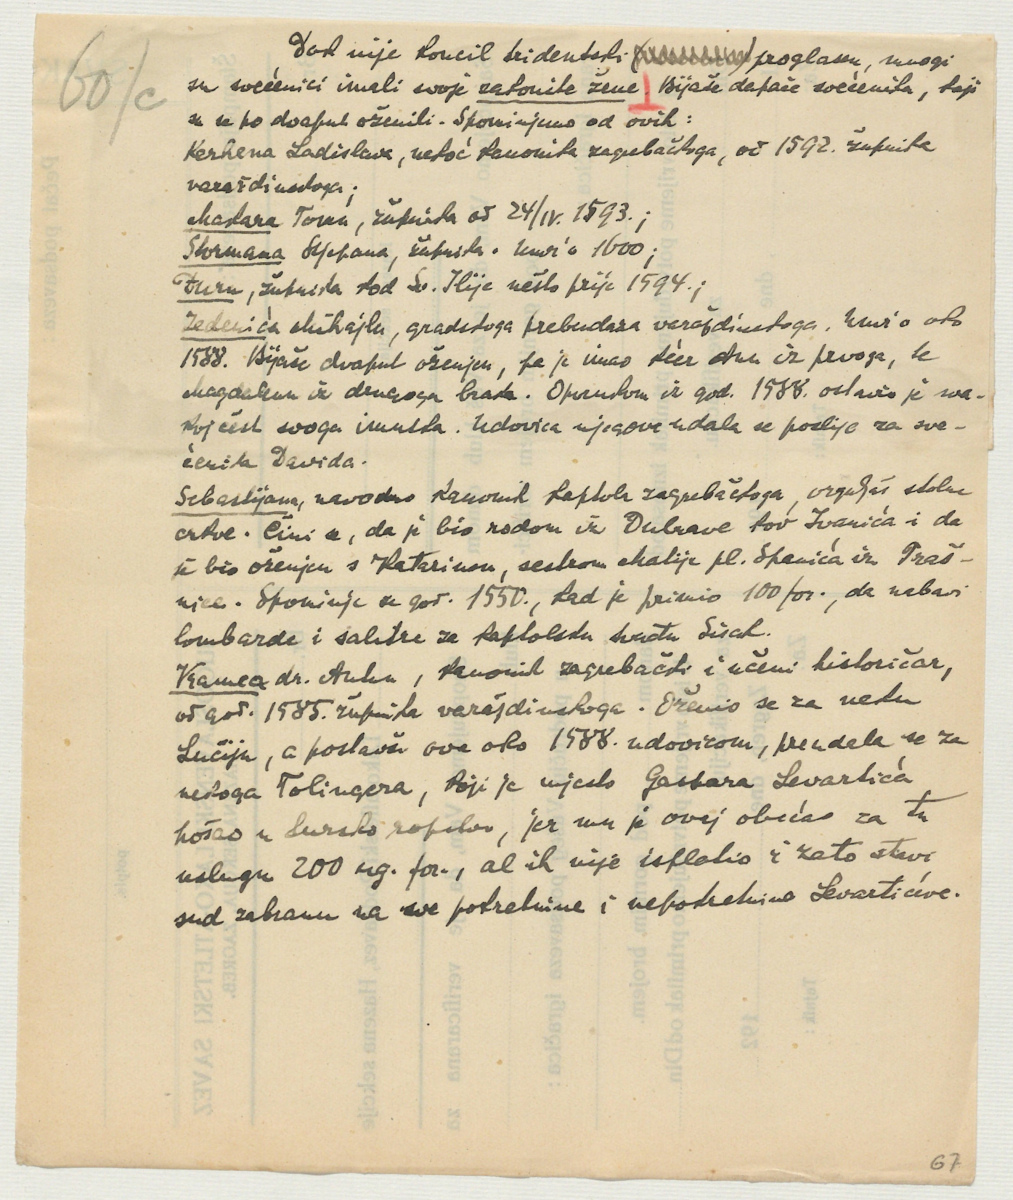 60/c
Dok nije koncil tridentski proglašen, mnogi
su svećenici imali svoje zakonite žene. Bijaše dapače svećenika, koji
su se po dvaput oženili. Spominjemo od ovih:
Kerhena Ladislava, nekoć kanonika zagrebačkoga, od 1592. župnika
varaždinskoga;
Makara Tomu, župnika od 24/IV. 1593.;
Stormana Stjepana, župnika. Umr'o 1600;
Đuru, župnika kod Sv. Ilije nešto prije 1594.;
Zedenića Mihajla, gradskoga prebendara varaždinskoga. Umr'o oko
1588. Bijaše dvaput oženjen, pa je imao kćer Anu iz prvoga, te
Magdalenu iz drugoga braka. Oporukom iz god. 1588. ostavio je sva-
koj čest svoga imutka. Udovica njegova udala se poslije za sve-
ćenika Davida.
Sebastijana, navodno kanonik kaptola zagrebačkoga, orguljaš stolne
crkve. Čini se, da je bio rodom iz Dubrave kod Ivanića i da
je bio oženjen s Katarinom, sestrom Matije pl. Spanića iz Praš-
njca. Spominje se god. 1550., kad je primio 100 for., da nabavi
lombarde i salitre za kaptolsku tvrđu Sisak.
Vramca dr. Antun, kanonik zagrebački i učeni historičar,
od god. 1585. župnika varaždinskoga. Oženio se za neku
Luciju, a postavši ova oko 1588. udovicom, preudala se za
nekoga Tolingera, koji je mjesto Gaspara Levartića
pošao u tursko ropstvo, jer mu je ovaj obećao za tu
uslugu 200 ug. for., al ih nije isplatio i zato stavi
sud zabranu na sve pokretnine i nepokretnine Levartićeve.
67